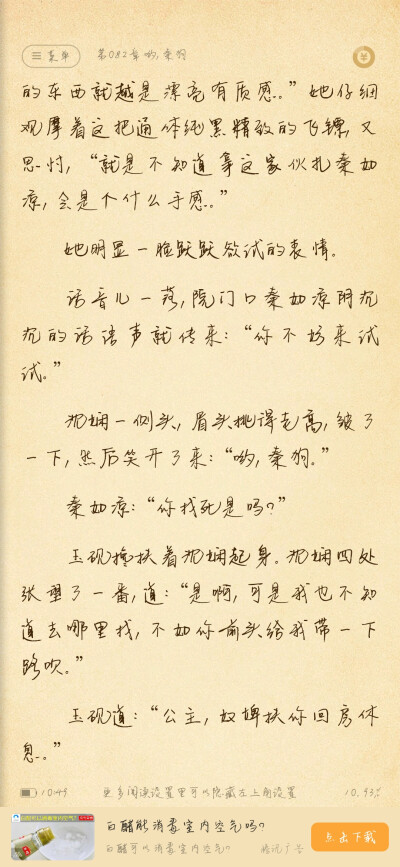 菜单
第082章 哟,秦狗
的东西就越是漂亮有质感。”她仔细
观摩着这把通体纯黑精致的飞镖,又
思忖,“就是不知道拿这家伙扎秦如
凉,会是个什么手感。”
她明显一脸跃跃欲试的表情。
话音儿一落,院门口秦如凉阴沉
沉的话语声就传来:“你不妨来试
试。”
沈娴一侧头,眉头挑得老高,皱了
一下,然后笑开了来:“哟,秦狗。”
秦如凉:“你找死是吗?”
玉砚搀扶着沈娴起身。沈娴四处
张望了一番,道:“是啊,可是我也不知
道去哪里找,不如你前头给我带一下
路吹。”
玉砚道:“公主,奴婢扶你回房休
息。”
10:49
更多阅读设置里可以隐藏左上角设置
10.93%
白醋能消毒室内空气吗?
白醋可以消毒室内空气吗?
腾讯广告
点击下载